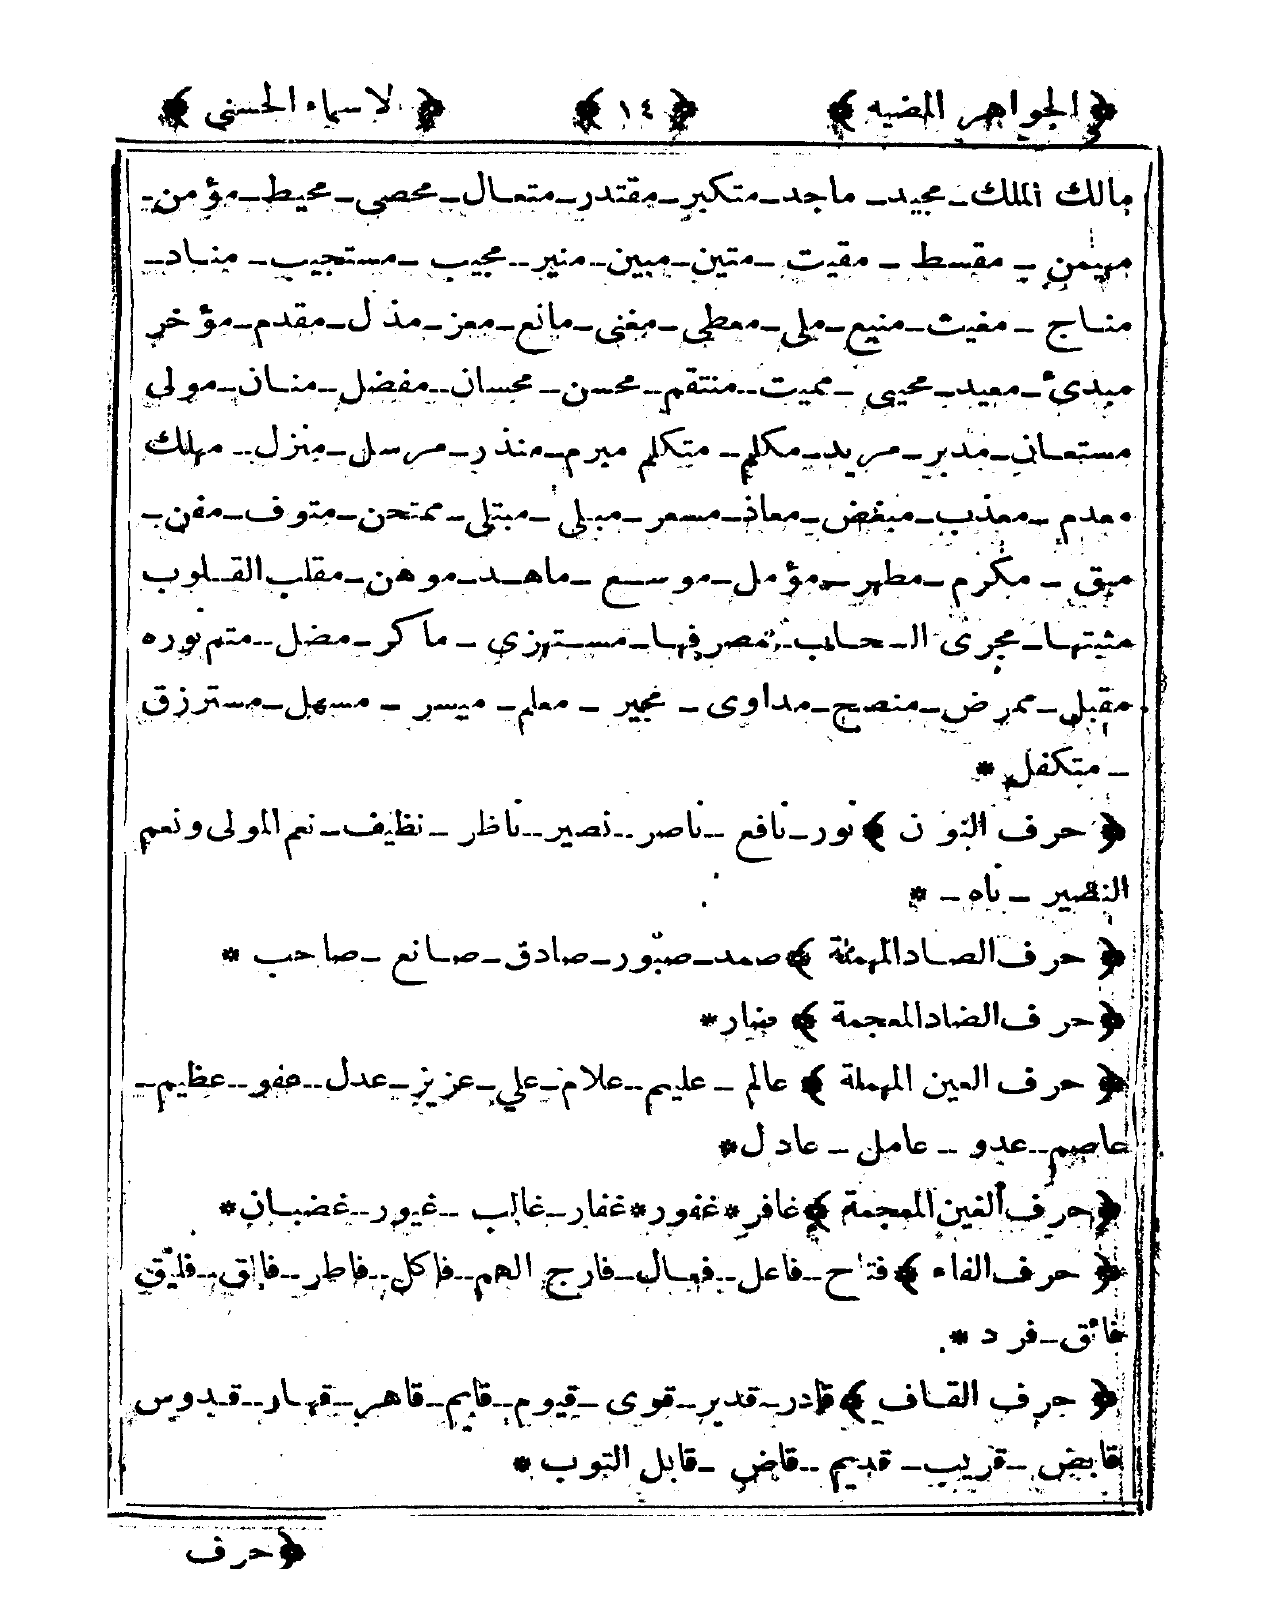 ﴿الجواهر المضيه﴾ ﴿١٤﴾ ﴿لاسماء الحسنى﴾
مالك الملك ـ مجيد ـ ماجد ـ متكبر ـ مقتدر ـ متعال ـ محصى ـ محيط ـ مؤمن ـ
مهيمن ـ مقسط ـ مقيت ـ متين ـ مبين ـ منير ـ مجيب ـ مستجيب ـ مناد ـ
مناج ـ مغيث ـ منيع ـ ملى ـ معطى ـ مغنى ـ مانع ـ معز ـ مذل ـ مقدم ـ مؤخر
مبدئ ـ معيد ـ محيى ـ مميت ـ منتقم ـ محسن ـ محسان ـ مفضل ـ منان ـ مولى
مستعان ـ مدبر ـ مريد ـ مكلم ـ متكلم مبرم ـ منذر ـ مرسل ـ منزل ـ مهلك
معدم ـ معذب ـ مبغض ـ معاذ ـ مسعر ـ مبلى ـ مبتلى ـ ممتحن ـ متوف ـ مفن ـ
مبق ـ مكرم ـ مطهر ـ مؤمل ـ موسع ـ ماهد ـ موهن ـ مقلب القلوب
مثبتها ـ مجرى ال حاب ـ مصرفها ـ مستهزى ـ ماكر ـ مضل ـ متم نوره
مقبل ـ ممرض ـ منصج ـ مداوى ـ مجير ـ معلم ـ ميسر ـ مسهل ـ مسترزق
ـ متكفل *
﴿حرف النون﴾ نور ـ نافع ـ ناصر ـ نصير ـ ناظر ـ نظيف ـ نعم المولى ونعم
النصير ـ ناه ـ *
﴿حرف الصاد المهملة﴾ صمد ـ صبور ـ صادق ـ صانع ـ صاحب *
﴿حرف الضاد المعجمة﴾ ضار *
﴿حرف العين المهملة﴾ عالم ـ عليم ـ علام ـ علي ـ عزيز ـ عدل ـ عفو ـ عظيم ـ
عاصم ـ عدو ـ عامل ـ عادل *
﴿حرف الغين المعجمة﴾ غافر * غفور * غفار ـ غالب ـ غيور ـ غضبان *
﴿حرف الفاء﴾ فتاح ـ فاعل ـ فعال ـ فارج الهم ـ فاكل ـ فاطر ـ فالق ـ فليق
فائق ـ فرد *
﴿حرف القاف﴾ قادر ـ قدير ـ قوى ـ قيوم ـ قايم ـ قاهر ـ قهار ـ قدوس
قابض ـ قريب ـ قديم ـ قاض ـ قابل التوب *
﴿حرف